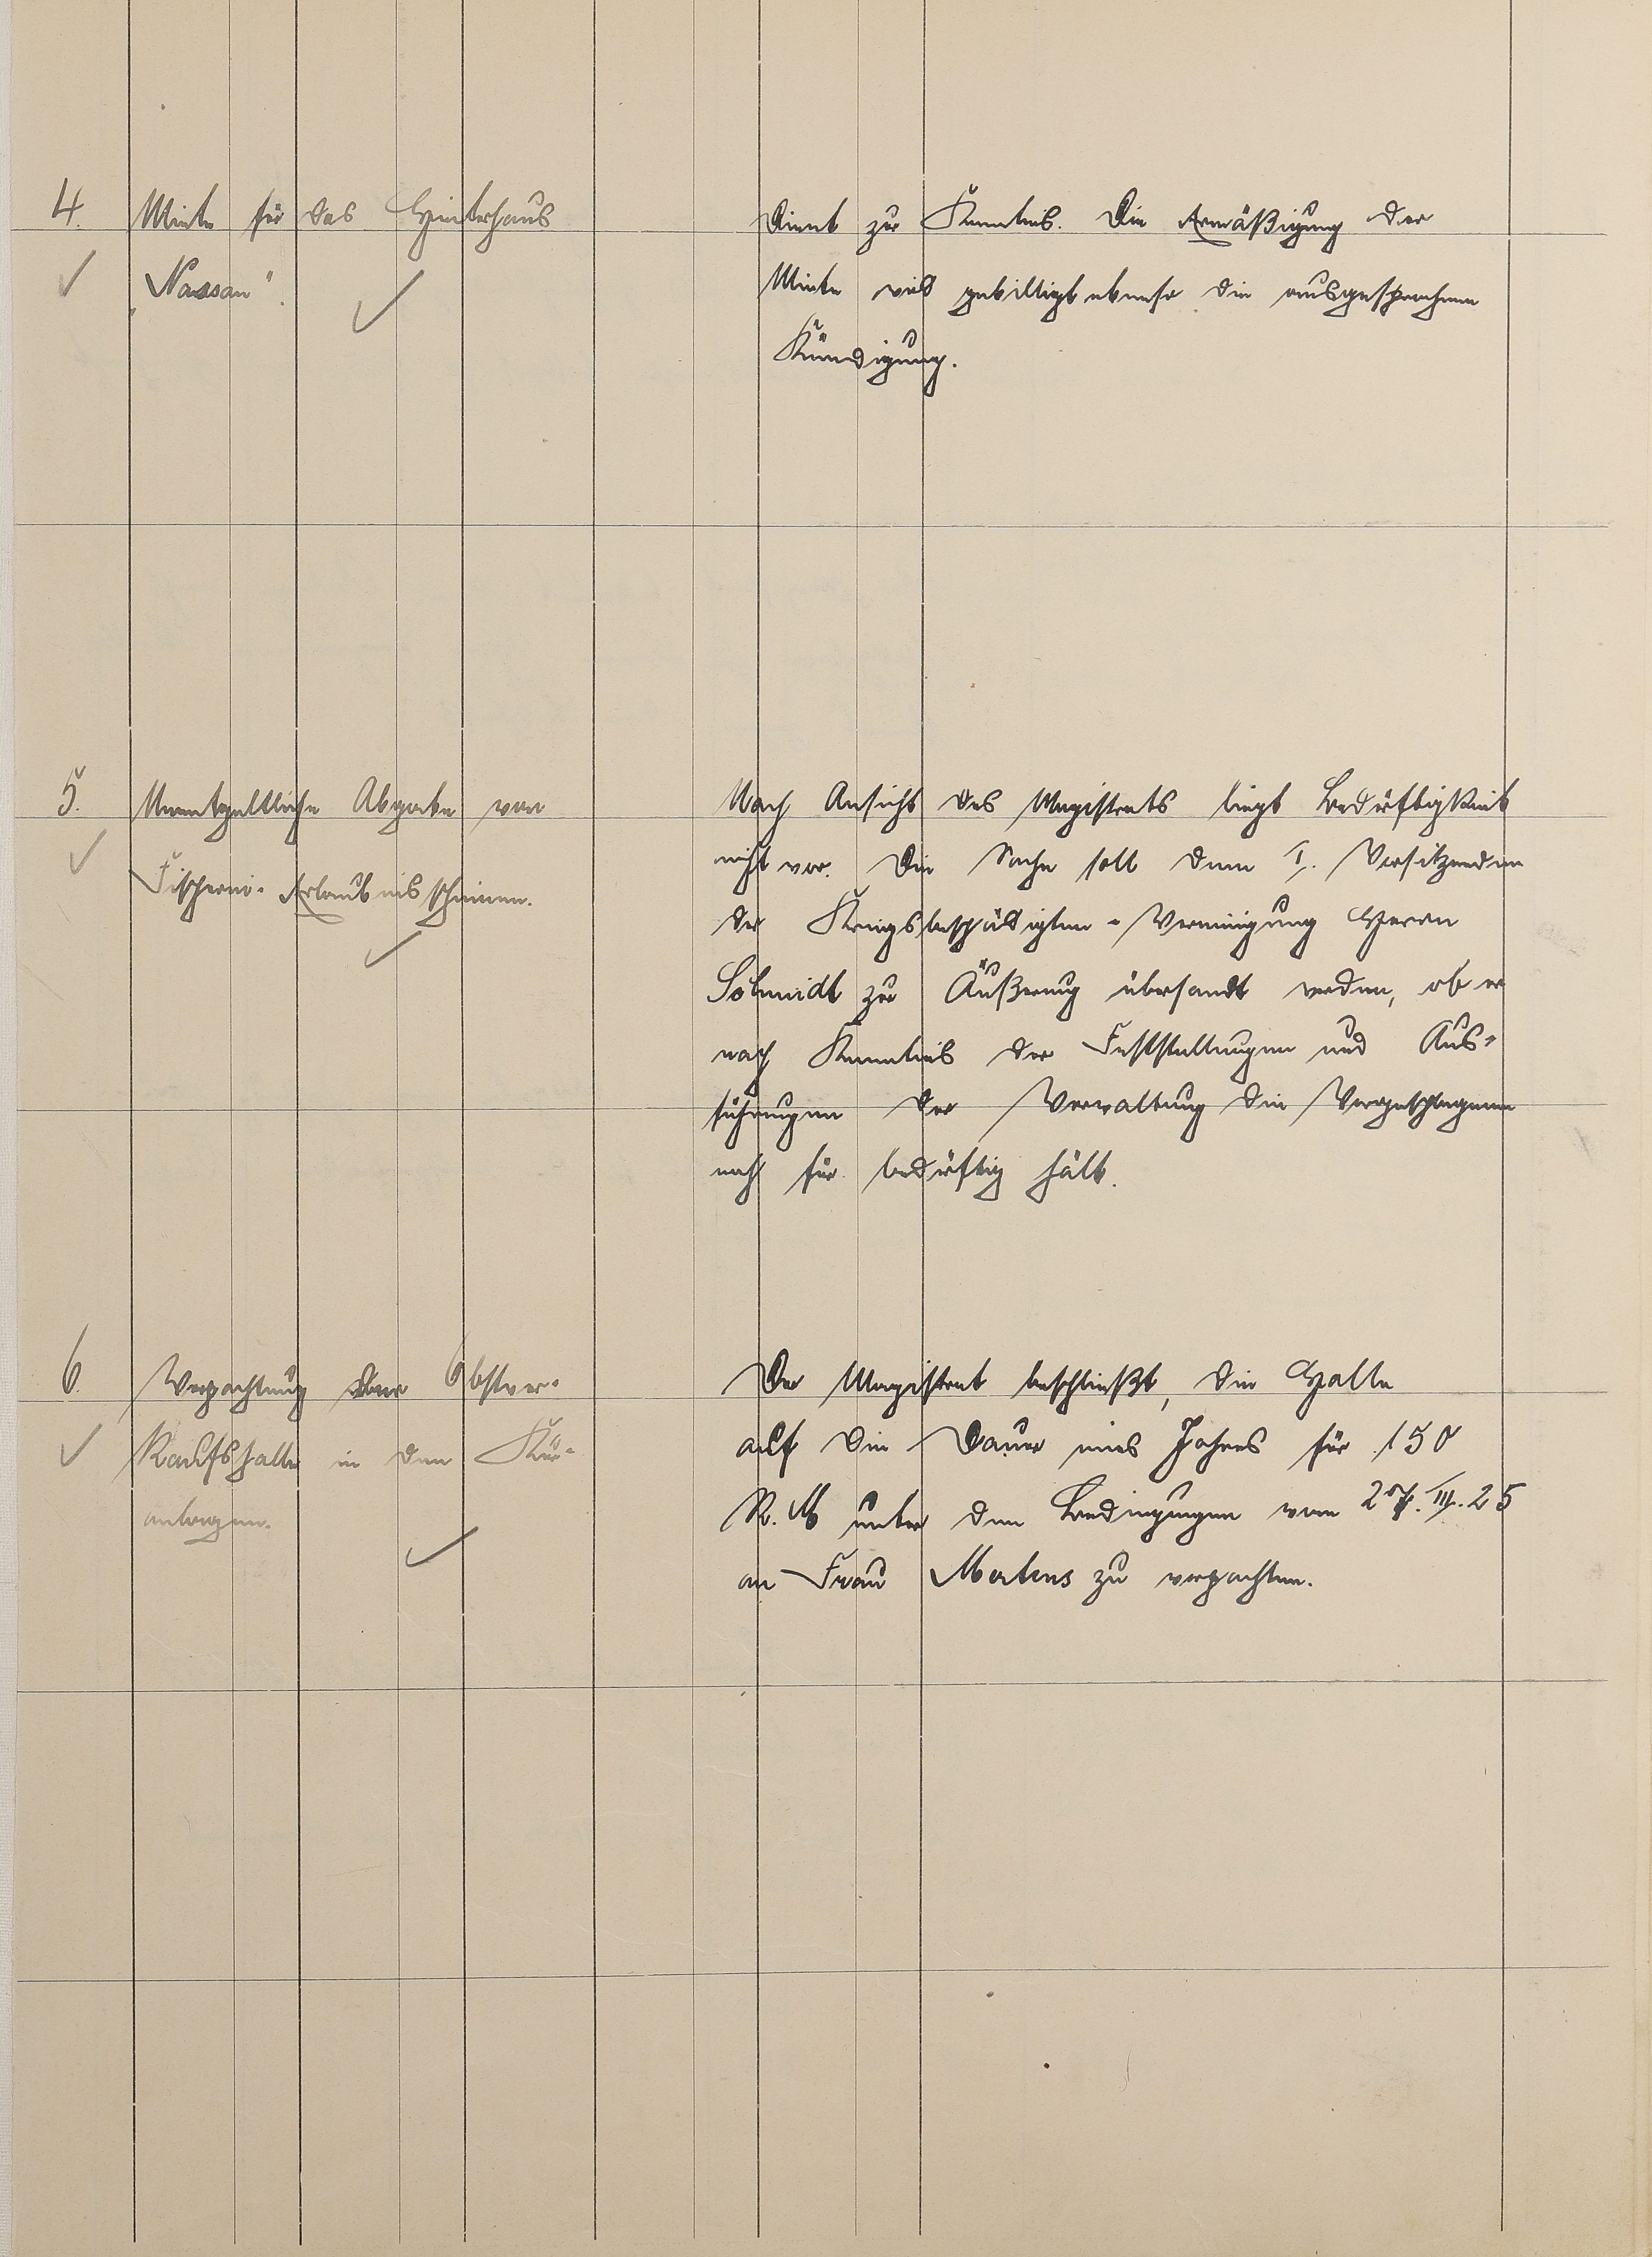 4. Miete für das Hinterhaus
„Nassau".
Dient zur Kenntnis. Die Ermäßigung der
Miete wird gebilligt ebenso die ausgesprochene
Kündigung.
5. Unentgeltliche Abgabe von
Fischerei-Erlaubnisscheinen.
Nach Ansicht des Magistrats liegt Bedürftigkeit
nicht vor. Die Sache soll dem I. Vorsitzenden
der Kriegsbeschädigten-Vereinigung Herrn
Schmidt zur Äußerung übersandt werden, ob er
nach Kenntnis der Feststellungen und Aus-
führungen der Verwaltung die Vorgeschlagenen
noch für bedürftig hält.
6. Verpachtung der Obstver-
kaufshalle in den Kur-
anlagen.
Der Magistrat beschließt, die Halle
auf die Dauer eines Jahres für 150
R.M unter den Bedingungen vom 27.III.25
an Frau Martens zu verpachten.